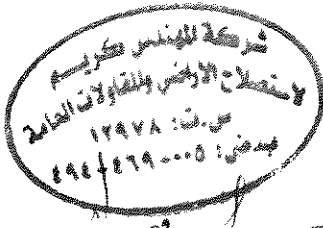 شركة المهندس كريم
لاستصلاح الاراضى والمقاولات العامة
س.ت: ١٢٩٧٨